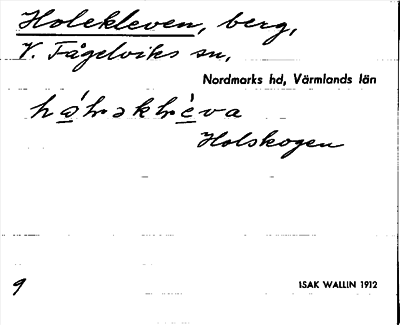 Holekleven, berg,
V. Fågelviks sn,
Nordmarks hd, Värmlands län
Holskogen
9
ISAK WALLIN 1912